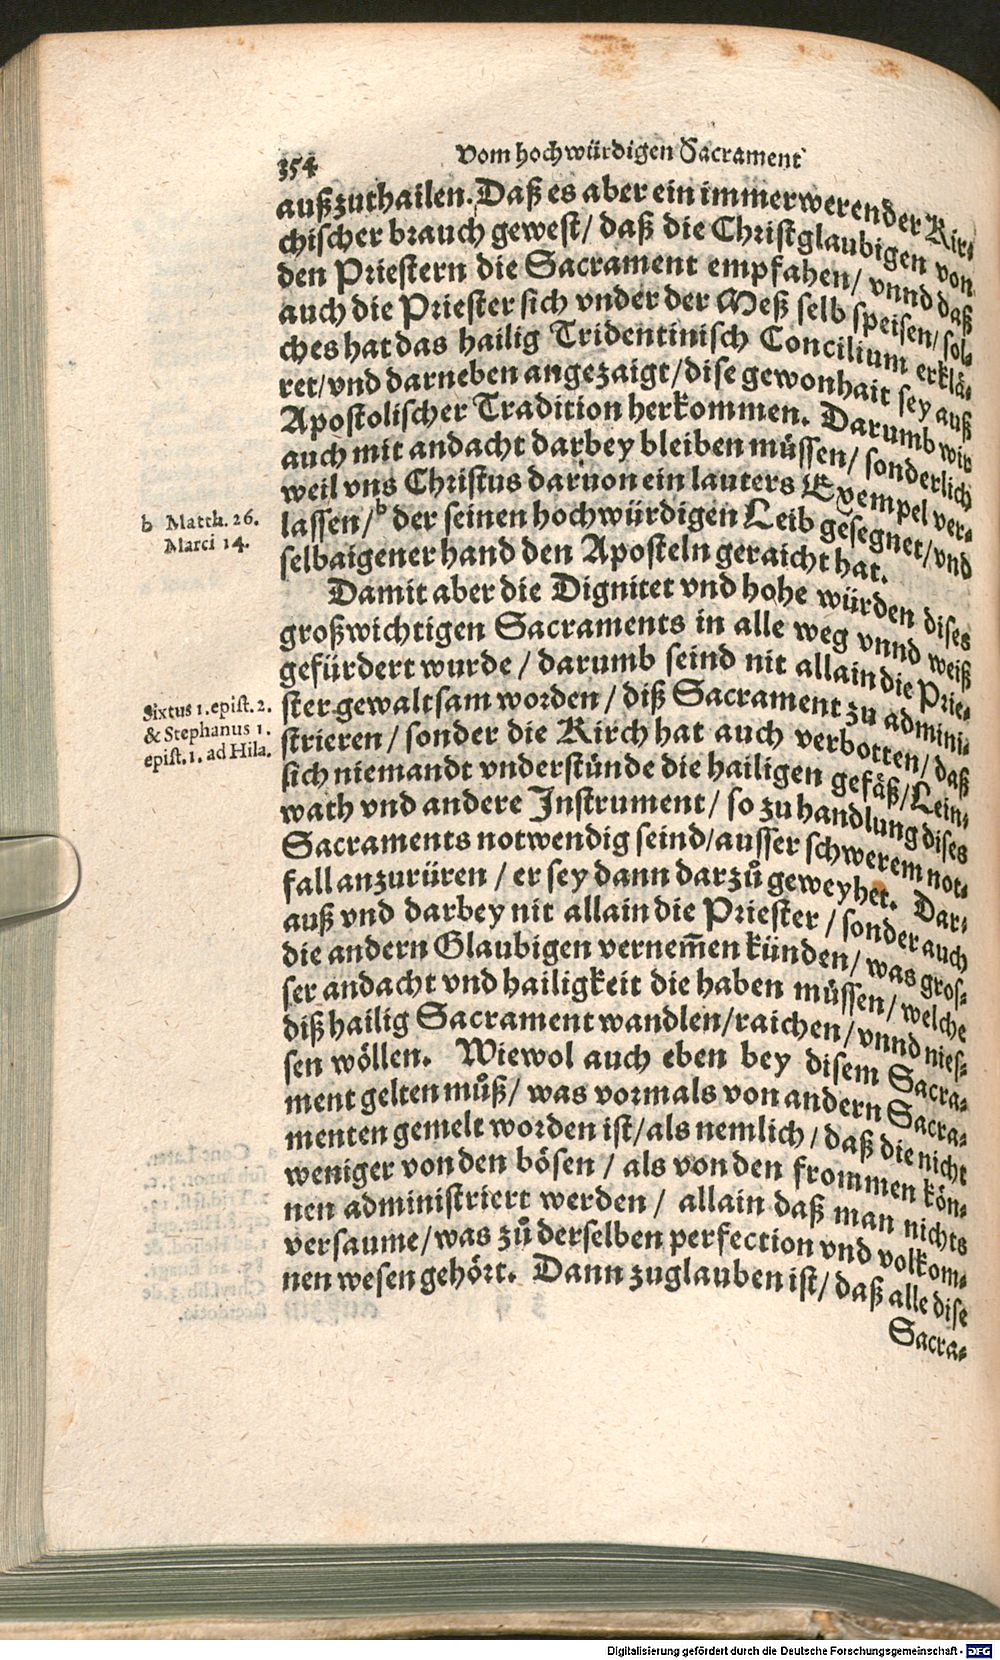 354
Vom hochwürdigen Sacrament
außzuthailen. Daß es aber ein immerwerender Kir-
chischer brauch gewest/ daß die Christglaubigen von
den Priestern die Sacrament empfahen/ vnnd daß
auch die Priester sich vnder der Meß selb speisen/ sol-
ches hat das hailig Tridentinisch Concilium erklä-
ret/ vnd darneben angezaigt/ dise gewonhait sey auß
Apostolischer Tradition herkommen. Darumb wir
auch mit andacht darbey bleiben müssen/ sonderlich
weil vns Christus daruon ein lauters Exempel ver-
lassen/ b der seinen hochwürdigen Leib gesegnet/ vnd
selbaigener hand den Aposteln geraicht hat.
b Matth. 26.
Marci 14.
Damit aber die Dignitet vnd hohe würden dises
großwichtigen Sacraments in alle weg vnnd weiß
gefürdert wurde/ darumb seind nit allain die Prie-
ster gewaltsam worden/ diß Sacrament zu admini-
strieren/ sonder die Kirch hat auch verbotten/ daß
sich niemandt vnderstünde die hailigen gefäß/ Lein-
wath vnd andere Instrument/ so zu handlung dises
Sacraments notwendig seind/ ausser schwerem not-
fall anzurüren/ er sey dann darzuͦ geweyhet. Dar-
auß vnd darbey nit allain die Priester/ sonder auch
die andern Glaubigen vernem̅en künden/ was gros-
ser andacht vnd hailigkeit die haben müssen/ welche
diß hailig Sacrament wandlen/ raichen/ vnnd nies-
sen wöllen. Wiewol auch eben bey disem Sacra-
ment gelten muͦß/ was vormals von andern Sacra-
menten gemelt worden ist/ als nemlich/ daß die nicht
weniger von den bösen/ als von den frommen kön-
nen administriert werden/ allain daß man nichts
versaume/ was zuͦ derselben perfection vnd volkom-
nen wesen gehört. Dann zuglauben ist/ daß alle dise
Sixtus 1. epist. 2.
& Stephanus 1.
epist. 1. ad Hila.
Sacra-
Digitalisierung gefördert durch die Deutsche Forschungsgemeinschaft - DFG